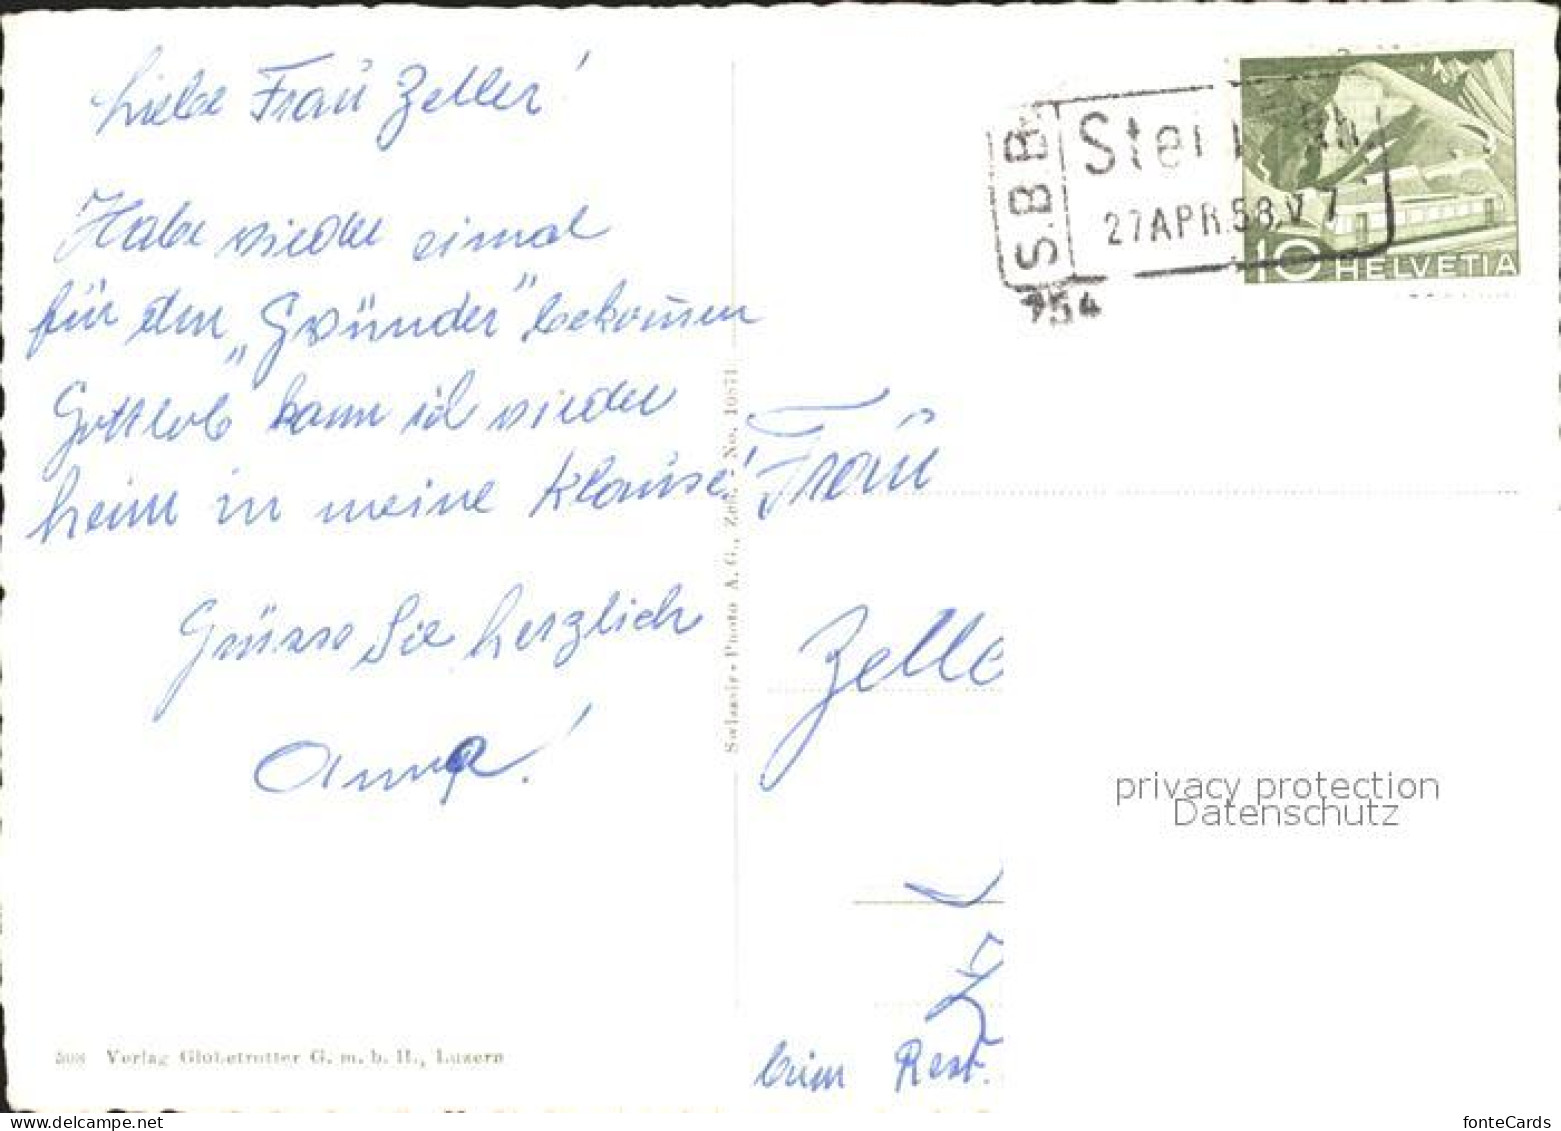 Liebe Frau Zeller!
Habe wieder einmal
für den „Gwünder" bekommen
Gottlob kann ich wieder
heim in meine Klause!
Grüsse Sie herzlich
Anna!
508 Verlag Globetrotter G. m. b. H., Luzern
Swissair-Photo A. G., Zch. - No. 10871
S.B.B.
Stein
27 APR. 58. V 7
754
10 HELVETIA
Frau
Zelle
beim Rest.
privacy protection
Datenschutz
www.delcampe.net
fonteCards